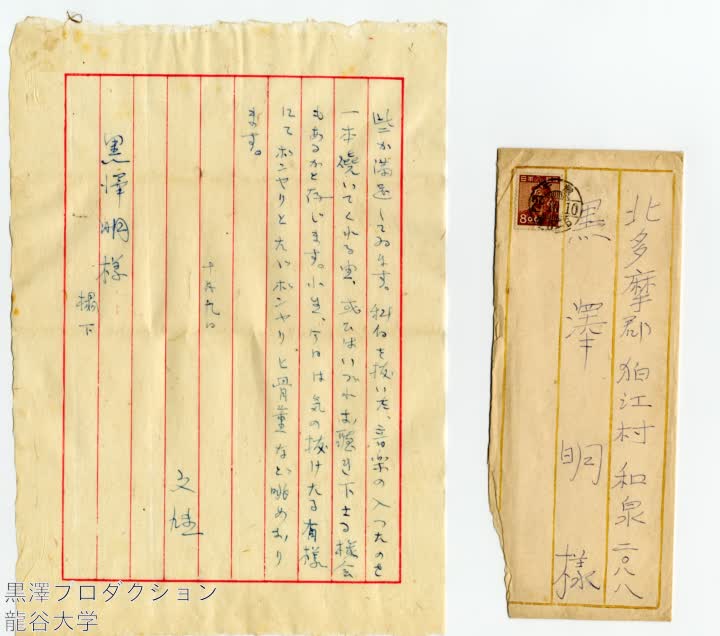 些か満足してゐます。科白を抜いた、音楽の入つたのを
一本焼いてくれる由、或ひはいづれお聴き下さる機会
もあるかと存じます。小生、今日は気の抜けたる有様
にてボンヤリと大いにボンヤリと骨董など眺めをり
ます。
十月九日
文雄
黒澤明様
榻下
北多摩郡狛江村和泉二〇八八
黒澤明様
日本郵便
8.00
黒澤プロダクション
龍谷大学